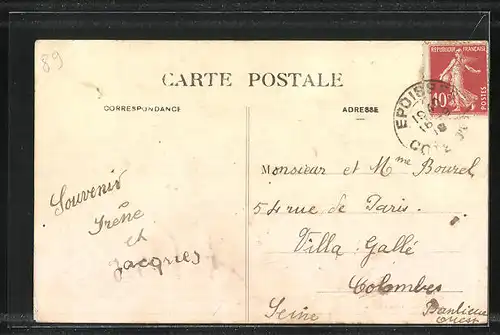 89
CARTE POSTALE
CORRESPONDANCE
ADRESSE
REPUBLIQUE FRANÇAISE
10c
POSTES
EPOISSES
Souvenir
Irène
et
Jacques
Monsieur et Mme Bourel
54 rue de Paris.
Villa Gallé
Colombes
Seine
Banlieue
ouest